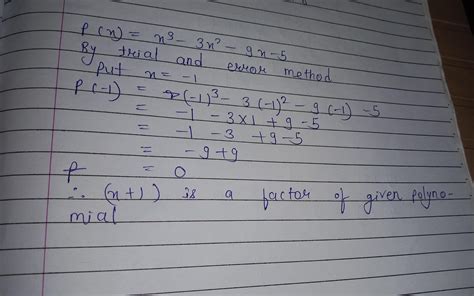 P(x) = x³ - 3x² - 9x - 5
By trial and error method
Put x = -1
P(-1) = (-1)³ - 3(-1)² - 9(-1) - 5
= -1 - 3×1 + 9 - 5
= -1 - 3 + 9 - 5
= -9 + 9
= 0
∴ (x+1) is a factor of given polyno-
mial